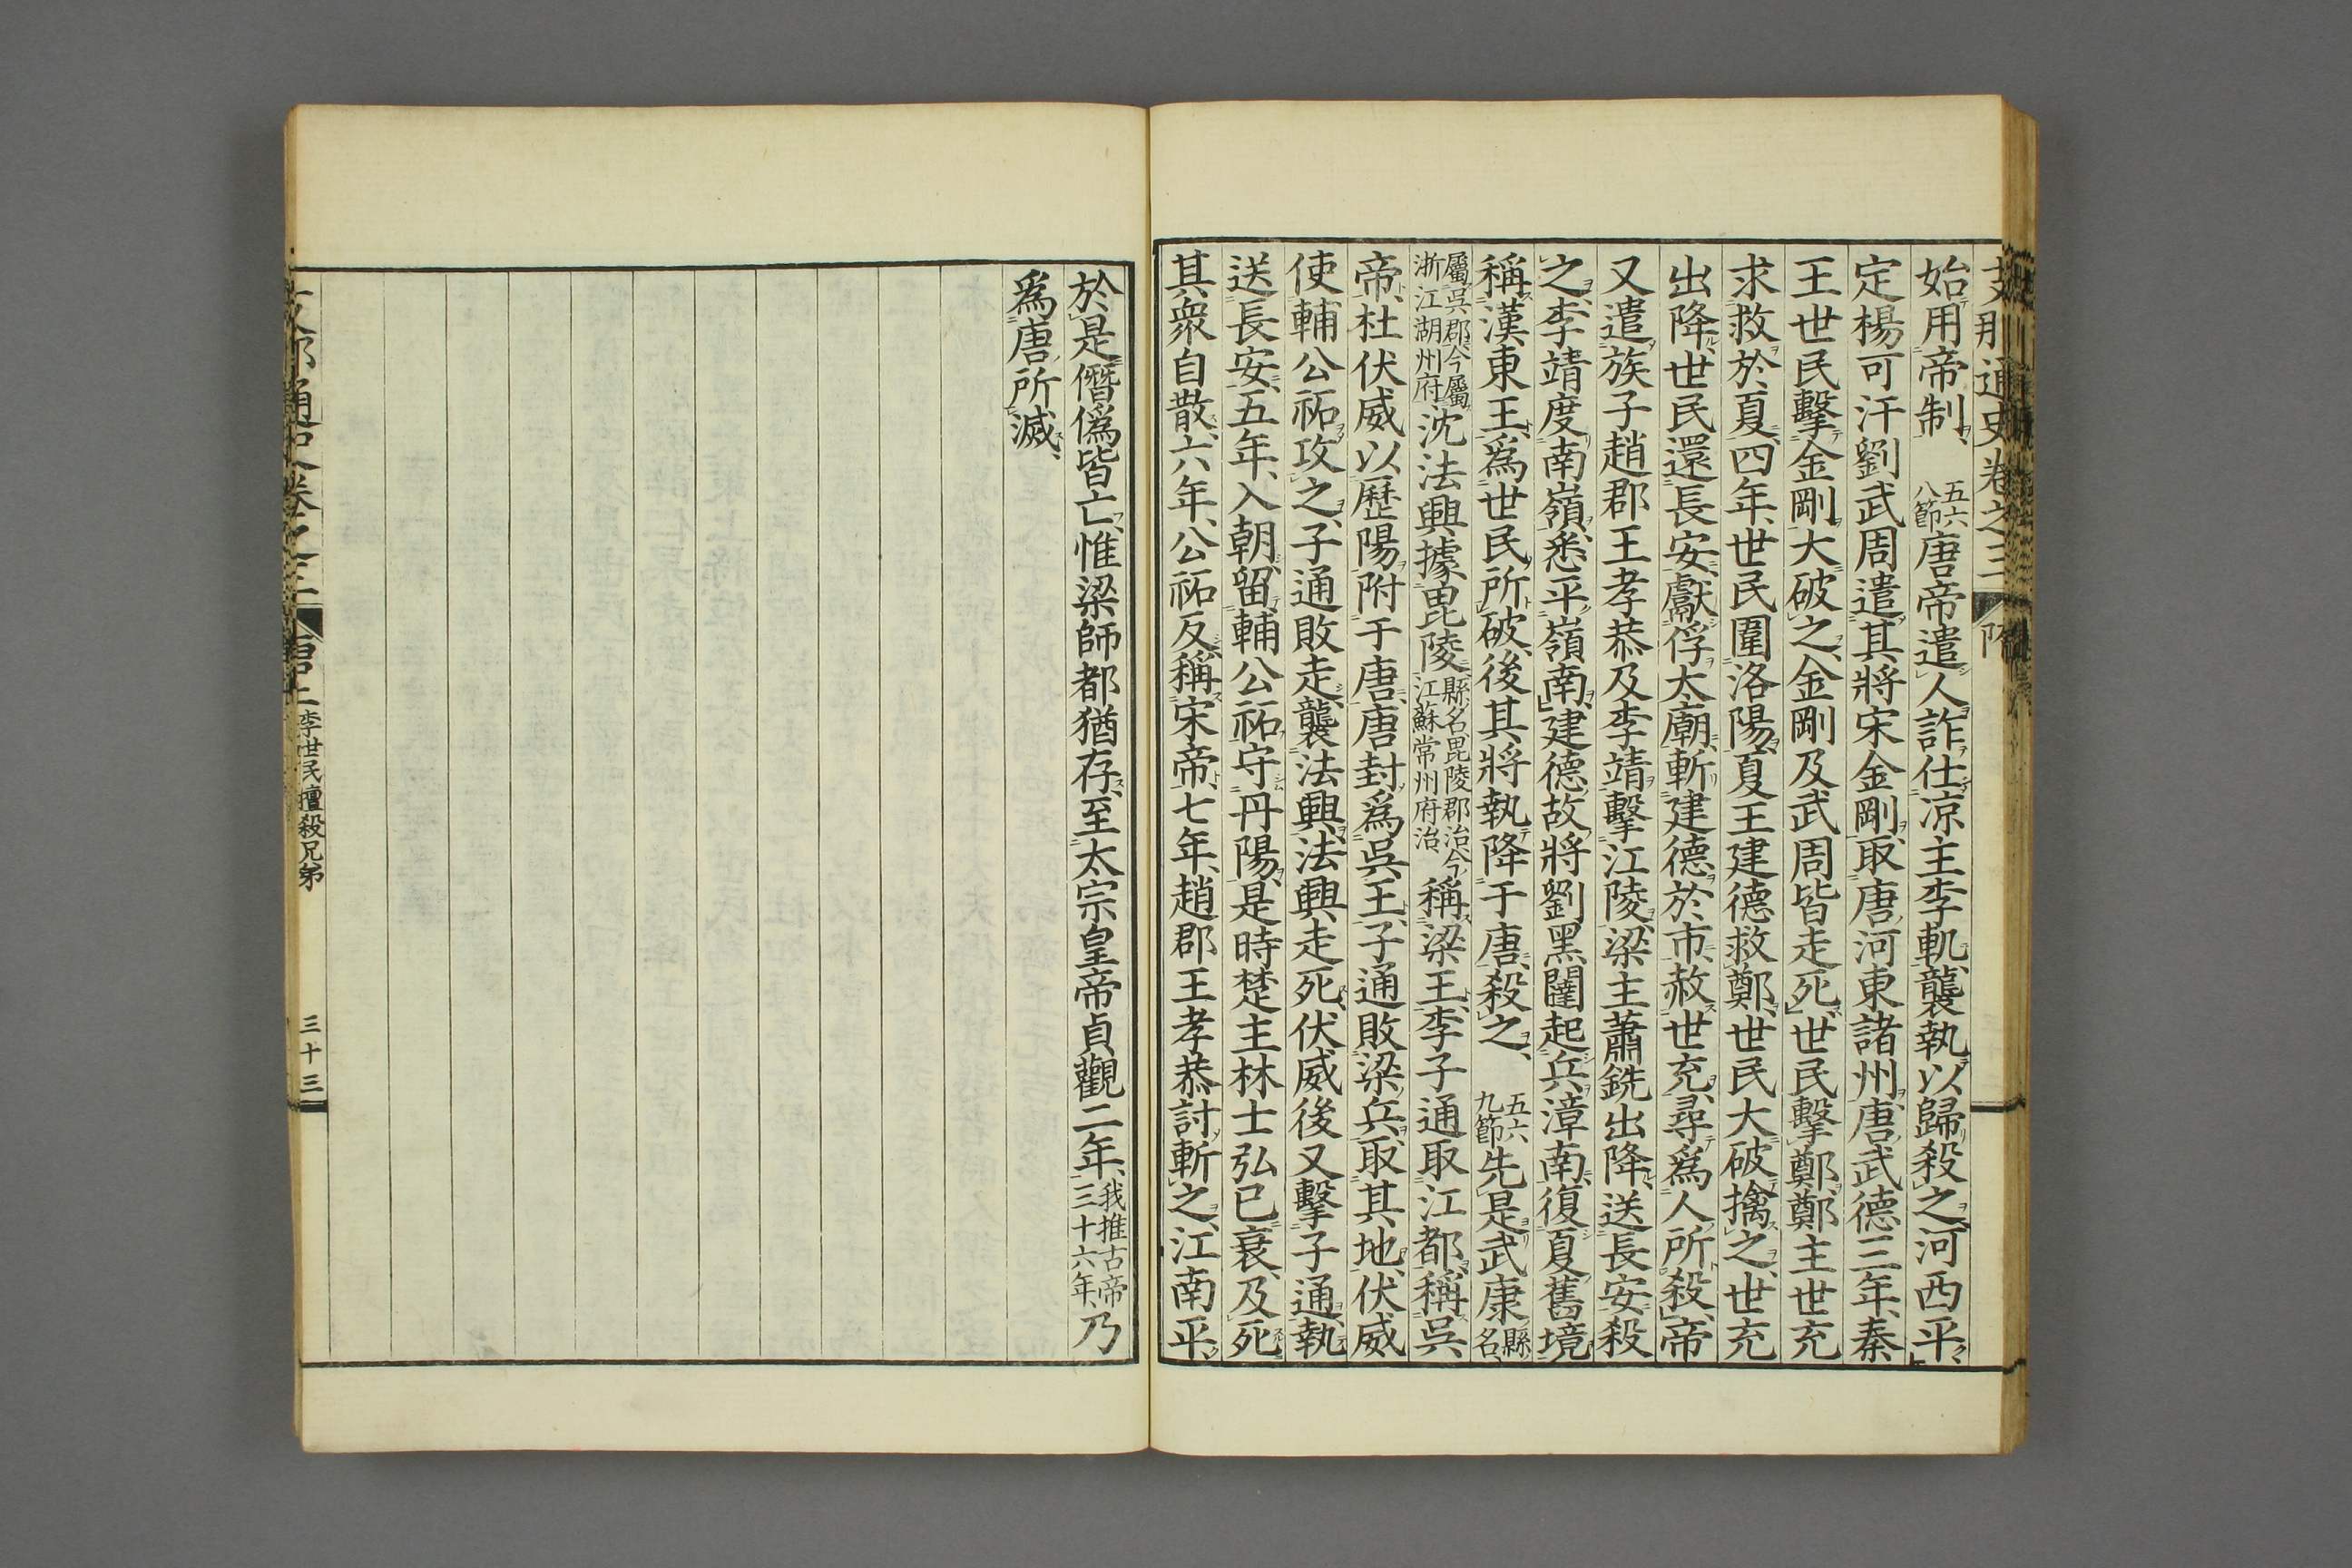 支那通史卷之三 隋
始用帝制、五六八節唐帝遣人詐仕凉主李軌、襲執以歸殺之、河西平、
定楊可汗劉武周遣其將宋金剛、取唐河東諸州、唐武德三年、秦
王世民擊金剛大破之、金剛及武周皆走死、世民擊鄭、鄭主世充
求救於夏、四年、世民圍洛陽、夏王建德救鄭、世民大破擒之、世充
出降、世民還長安、獻俘太廟、斬建德於市、赦世充、尋爲人所殺、帝
又遣族子趙郡王孝恭及李靖擊江陵、梁主蕭銑出降、送長安殺
之、李靖度南嶺、悉平嶺南、建德故將劉黑闥起兵漳南、復夏舊境、
稱漢東王、爲世民所破、後其將執降于唐、殺之、五六九節先是武康縣名、
屬吳郡、今屬浙江湖州府沈法興據毘陵、縣名毘陵郡治、今江蘇常州府治稱梁王、李子通取江都、稱吳
帝、杜伏威以歷陽附于唐、唐封爲吳王、子通敗梁兵、取其地、伏威
使輔公祏攻之、子通敗走、襲法興、法興走死、伏威後又擊子通、執
送長安、五年、入朝、留輔公祏守丹陽、是時楚主林士弘已衰、及死
其衆自散、六年、公祏反、稱宋帝、七年、趙郡王孝恭討斬之、江南平、
於是僭僞皆亡、惟梁師都猶存、至太宗皇帝貞觀二年、我推古帝三十六年、乃
爲唐所滅、
支那通史卷之三 唐上 李世民擅殺兄弟 三十三